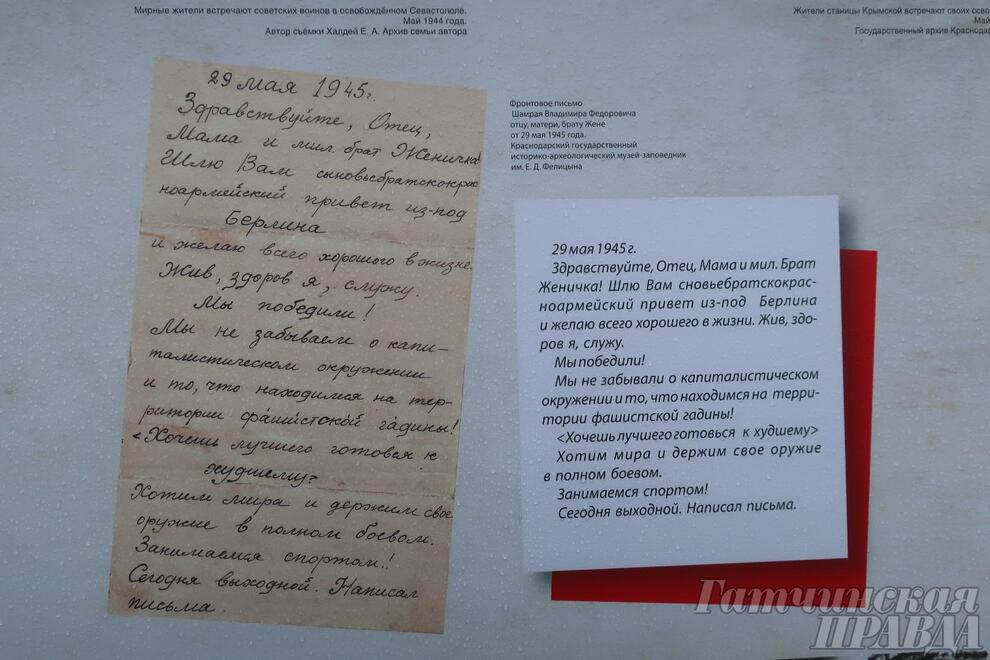 Мирные жители встречают советских воинов в освобождённом Севастополе.
Май 1944 года.
Автор съёмки Халдей Е. А. Архив семьи автора
Жители станицы Крымской встречают своих осво
Май
Государственный архив Краснода
29 мая 1945г.
Здравствуйте, Отец,
Мама и мил. брат Женичка!
Шлю Вам сыновьебратскокрас
ноармейский привет из-под
Берлина
и желаю всего хорошого в жизне.
Жив, здоров я, служу.
Мы победили!
Мы не забываем о капи-
талистическом окружении
и то, что находимся на тер-
ритории фашистской гадины!
<Хочешь лучшего готовься к
худшему>
Хотим мира и держим свое
оружие в полном боевом.
Занимаемся спортом!
Сегодня выходной. Написал
письма.
Фронтовое письмо
Шамрая Владимира Федоровича
отцу, матери, брату Жене
от 29 мая 1945 года.
Краснодарский государственный
историко-археологический музей-заповедник
им. Е. Д. Фелицына
29 мая 1945 г.
Здравствуйте, Отец, Мама и мил. Брат
Женичка! Шлю Вам сновьебратскокрас-
ноармейский привет из-под Берлина
и желаю всего хорошего в жизни. Жив, здо-
ров я, служу.
Мы победили!
Мы не забывали о капиталистическом
окружении и то, что находимся на терри-
тории фашистской гадины!
<Хочешь лучшего готовься к худшему>
Хотим мира и держим свое оружие
в полном боевом.
Занимаемся спортом!
Сегодня выходной. Написал письма.
Гатчинская
ПРАВДА